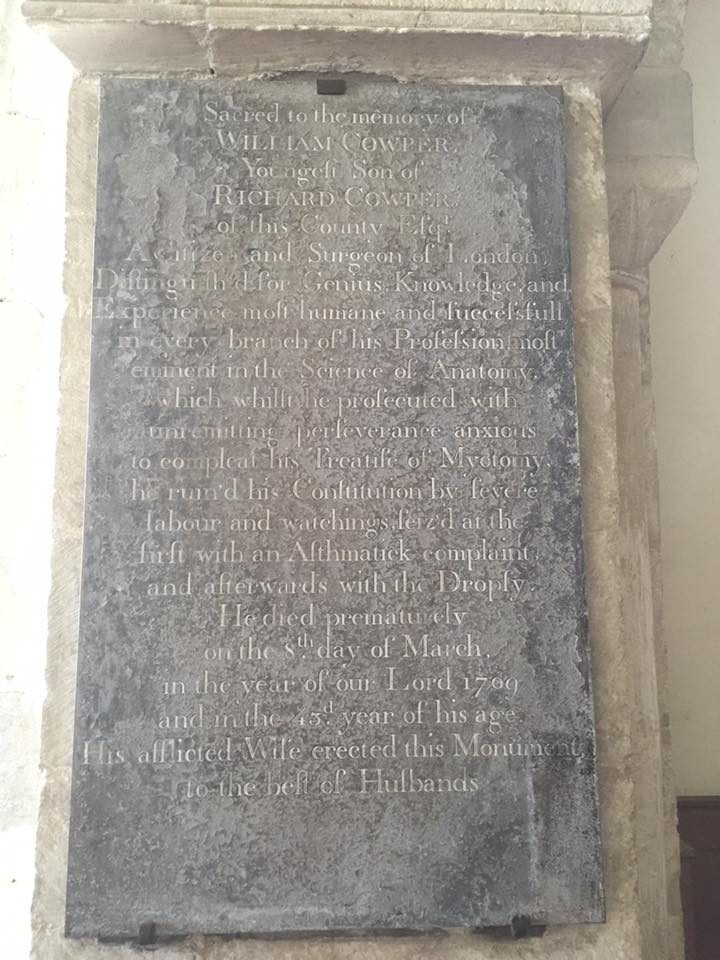 Sacred to the memory of
WILLIAM COWPER,
Youngeſt Son of
RICHARD COWPER,
of this County Eſqr.
A Citizen and Surgeon of London,
Diſtinguiſh'd for Genius, Knowledge, and
Experience moſt humane and ſucceſsfull
in every branch of his Profeſsion, moſt
eminent in the Science of Anatomy,
which whilſt he proſecuted with
unremitting perſeverance anxious
to compleat his Treatiſe of Myotomy,
he ruin'd his Conſtitution by ſevere
labour and watchings, ſeiz'd at the
firſt with an Aſthmatick complaint,
and afterwards with the Dropſy.
He died prematurely
on the 8th day of March,
in the year of our Lord 1709
and in the 43d year of his age.
His afflicted Wife erected this Monument,
to the beſt of Huſbands